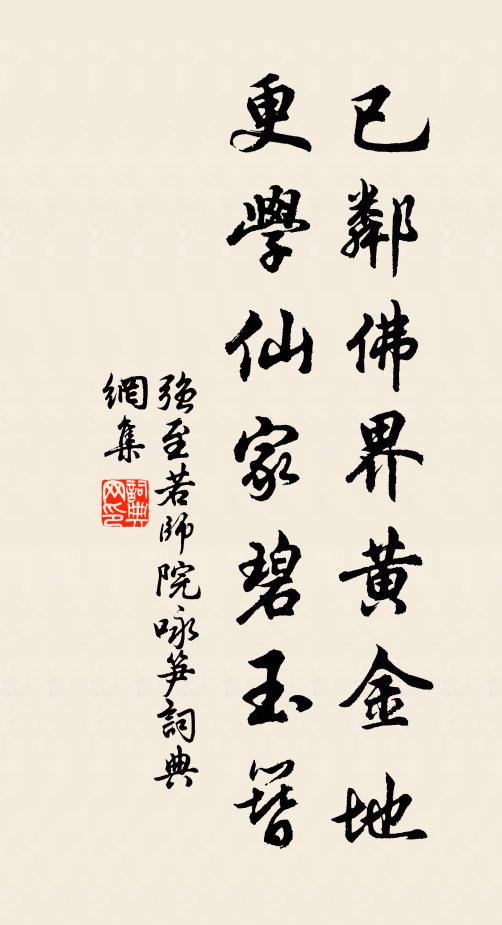 已鄰佛界黄金地
更學仙家碧玉簪
強至若師院咏笋詞典
網集
詞典
网印